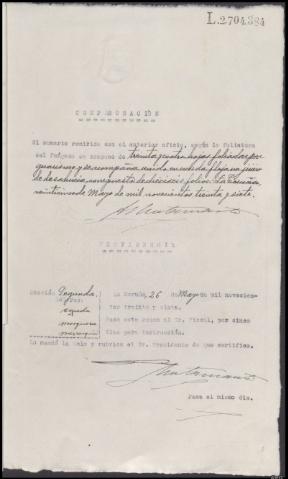 L.2704384
COMPROBACIÓN
El sumario remitido con el anterior oficio, según la foliatura
del Juzgado se compone de treinta y cuatro hojas foliadas por
guarismos y se acompaña unido en cuerda floja un
de dieciseis folios. La Coruña,
veintiseis de Mayo de mil novecientos treinta y siete.
PROVIDENCIA
Sección Segunda
La Coruña, 26 de Mayo de mil novecien-
tos treinta y siete.
Pase esta causa al Sr. Fiscal, por cinco
días para instrucción.
Lo mandó la Sala y rubrica el Sr. Presidente de que certifico.
Pasa el mismo día.